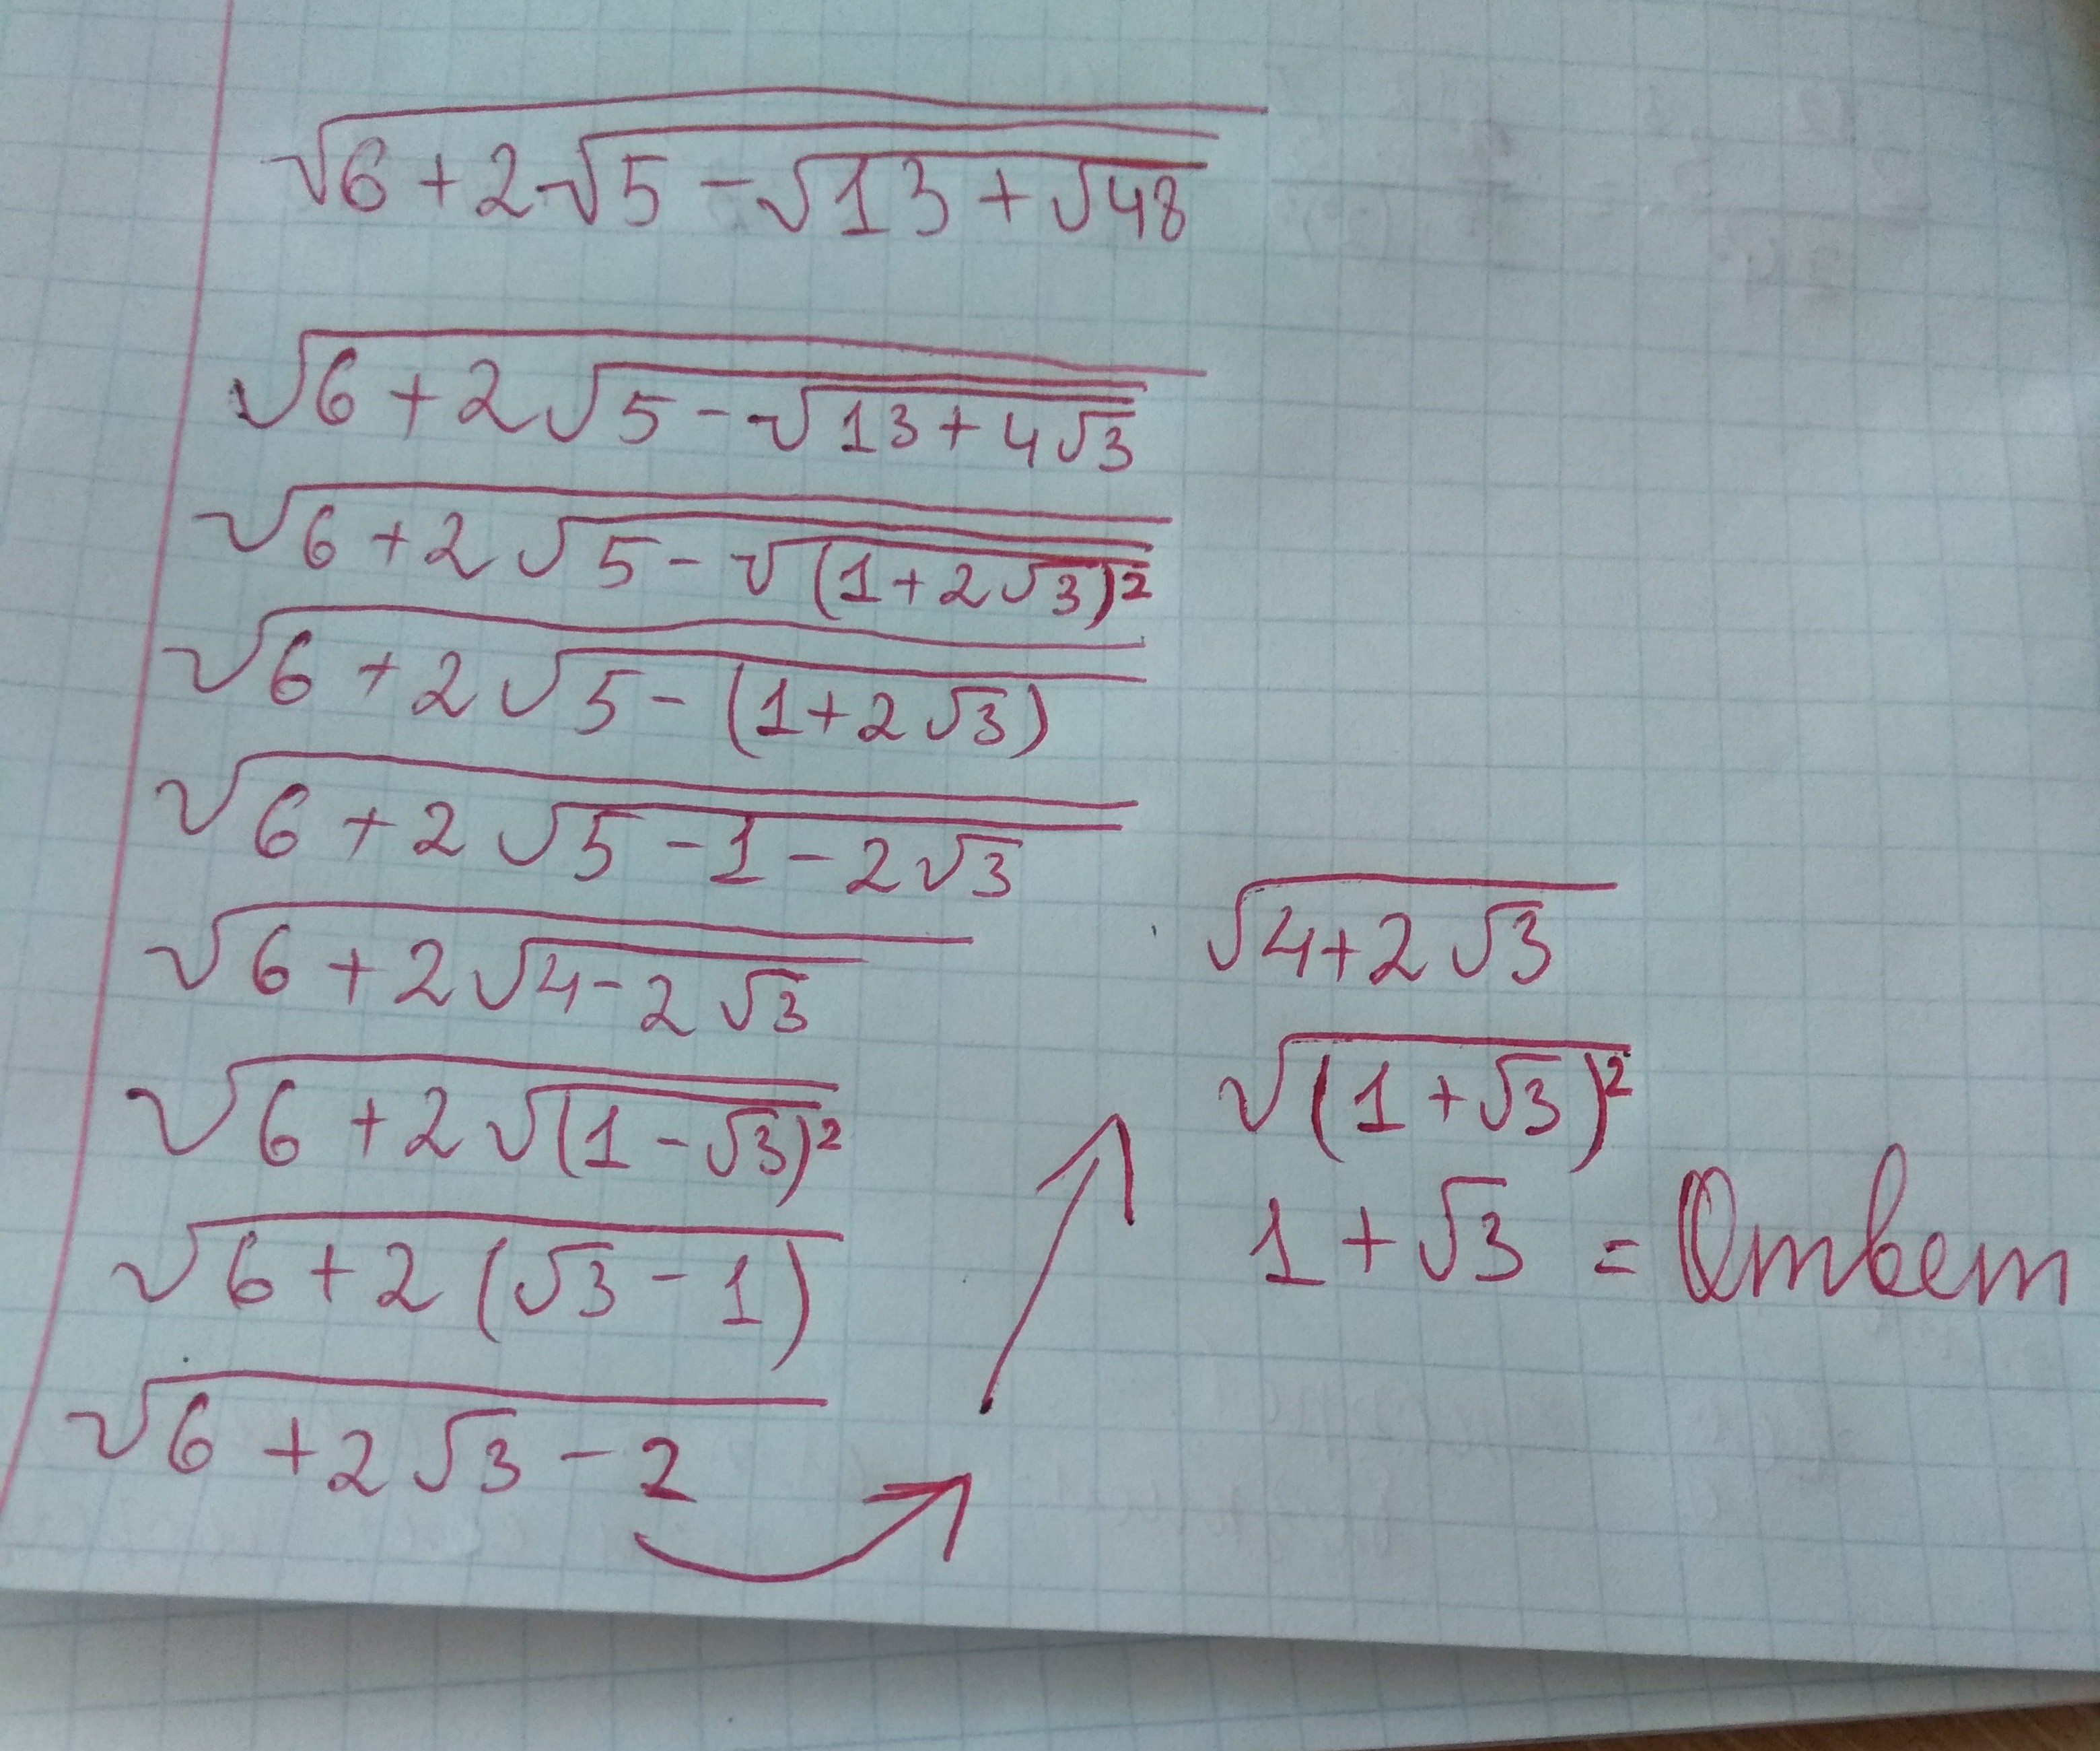 √(6 + 2√(5 - √(13 + √48)))
√(6 + 2√(5 - √(13 + 4√3)))
√(6 + 2√(5 - √((1 + 2√3)²)))
√(6 + 2√(5 - (1 + 2√3)))
√(6 + 2√(5 - 1 - 2√3))
√(6 + 2√(4 - 2√3))
√(6 + 2√((1 - √3)²))
√(6 + 2(√3 - 1))
√(6 + 2√3 - 2)
√(4 + 2√3)
√((1 + √3)²)
1 + √3 = Ответ